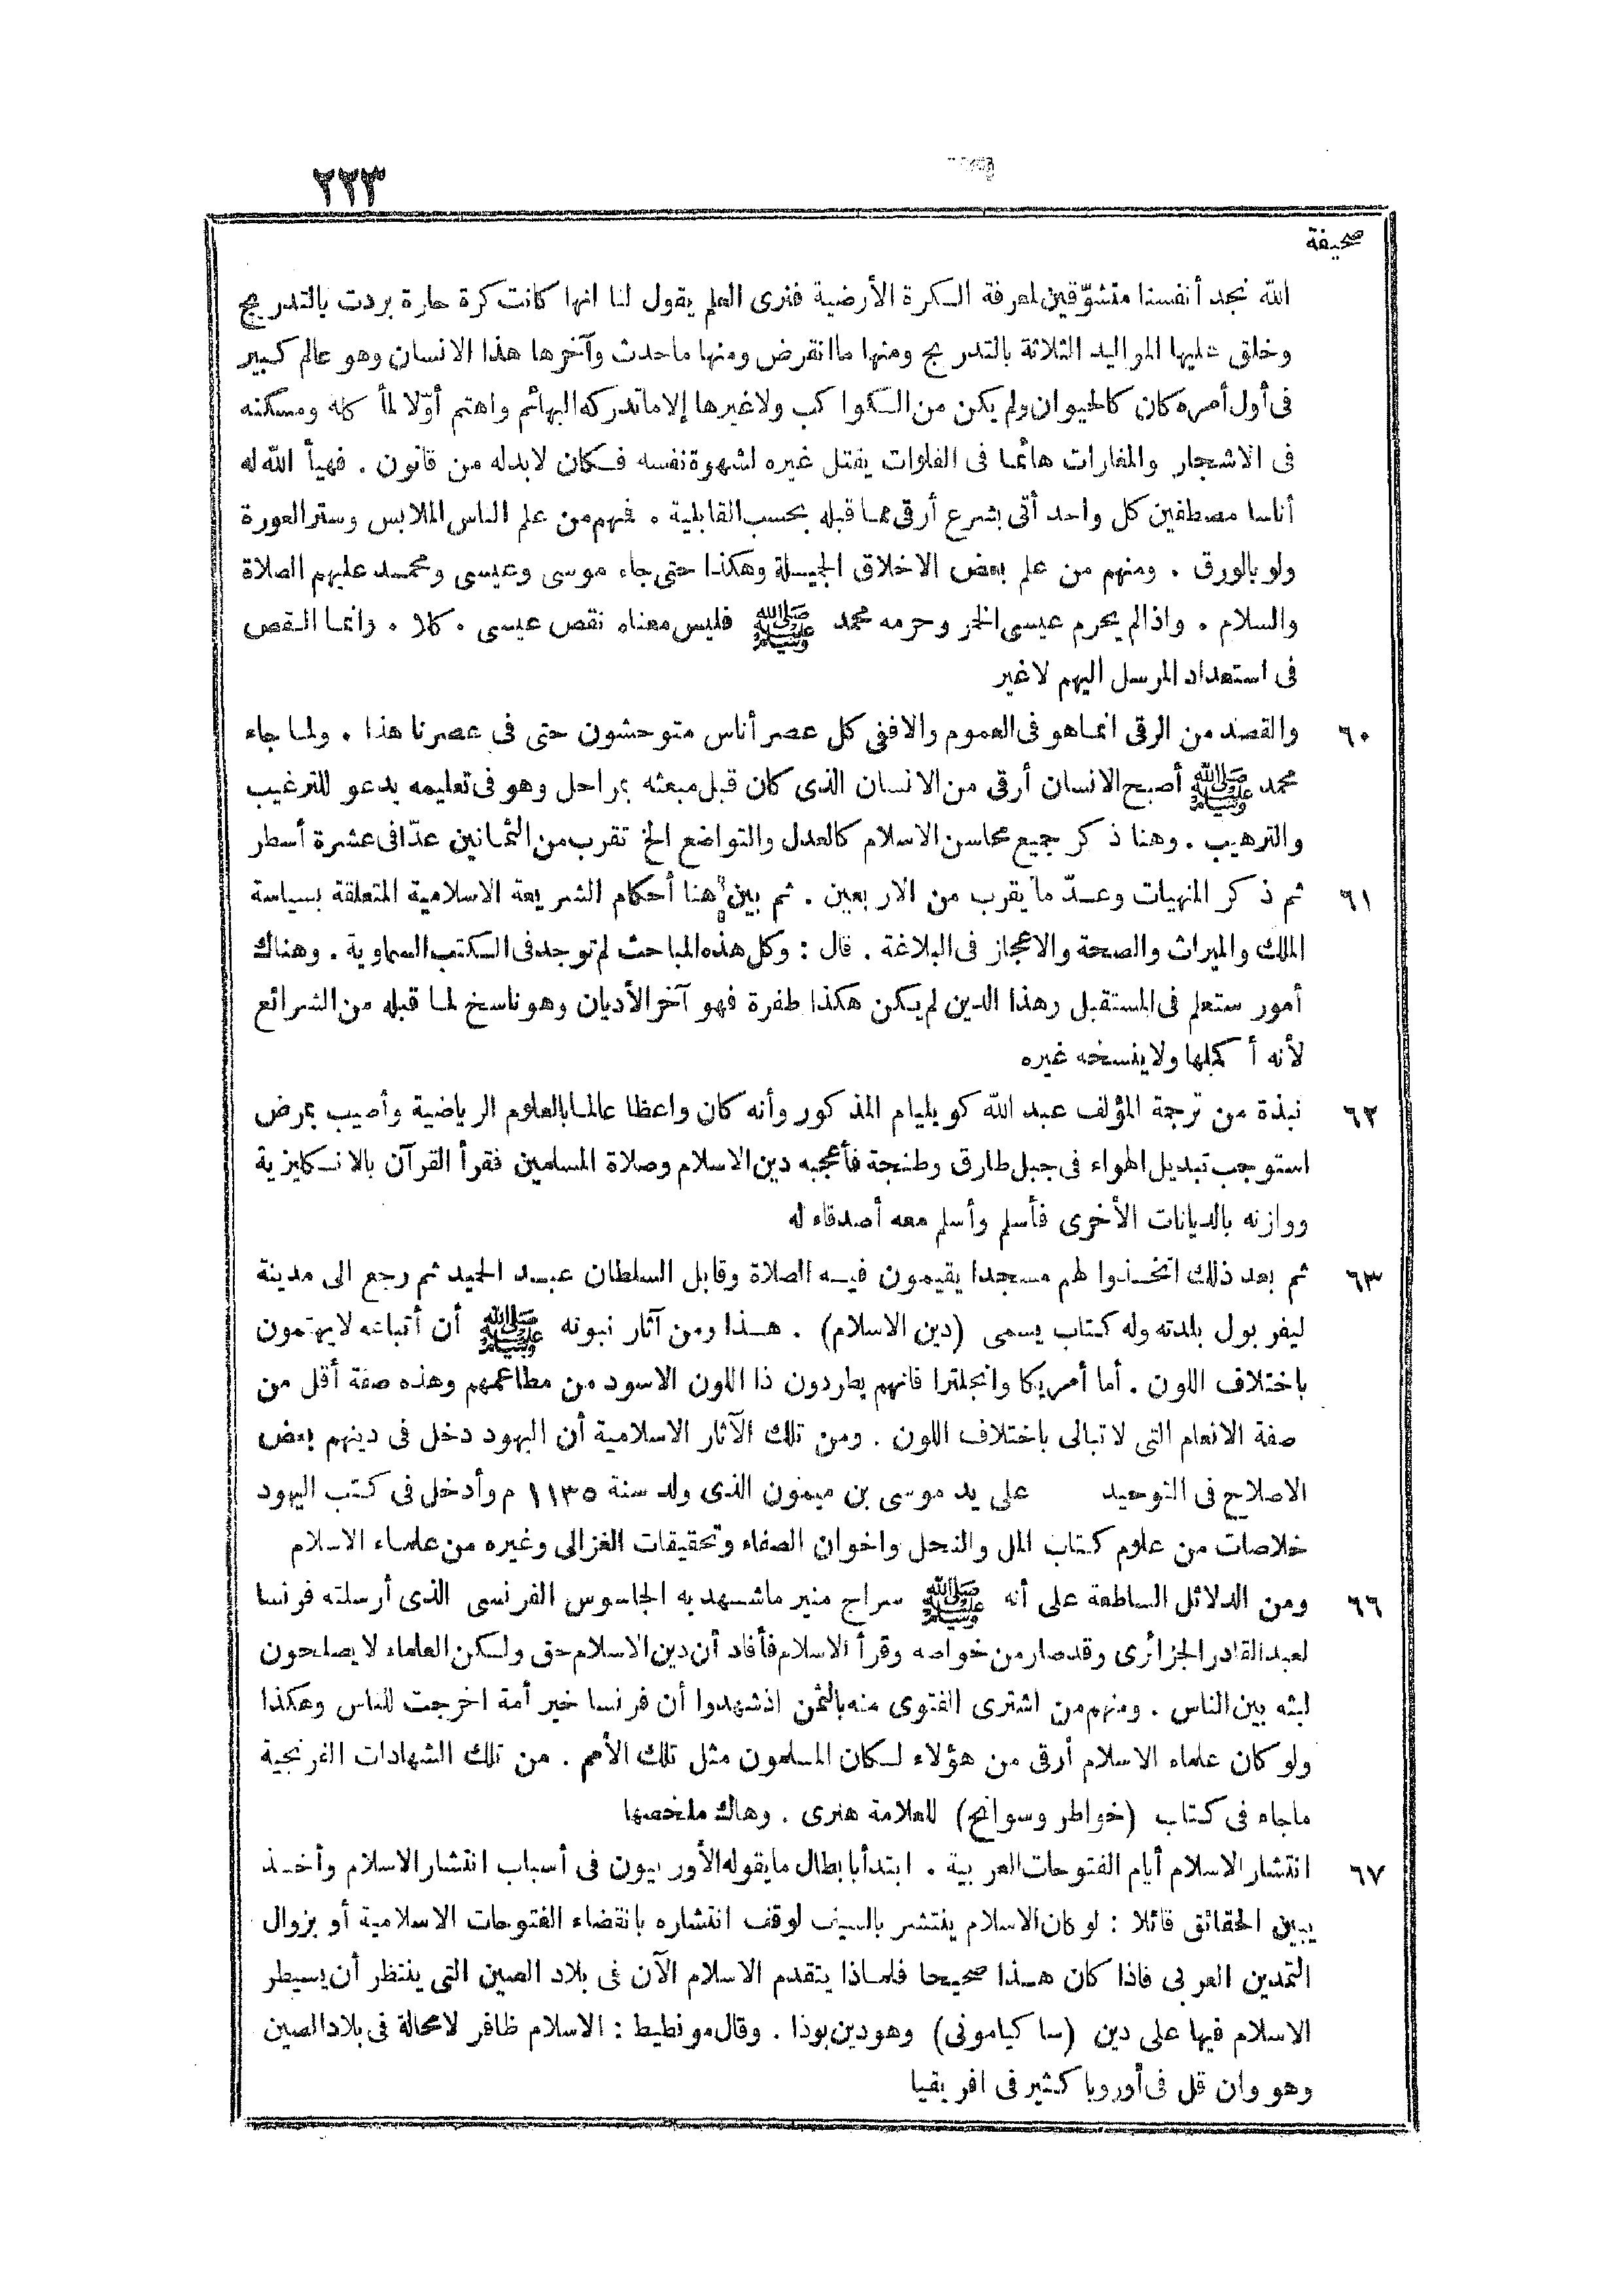 ٢٢٣
صحيفة
الله نجد أنفسنا متشوّقين لمعرفة الكرة الأرضية فنرى العلم يقول لنا انها كانت كرة حارة بردت بالتدريج
وخلق عليها المواليد الثلاثة بالتدريج ومنها ماانقرض ومنها ماحدث وآخرها هذا الانسان وهو عالم كبير
فى أول أمره كان كالحيوان ولم يكن من الكواكب ولاغيرها إلا ماتدركه البهائم واهتم أوّلا لمأكله ومسكنه
فى الاشجار والمغارات هائما فى الفلوات يقتل غيره لشهوة نفسه فكان لابد له من قانون . فهيأ الله له
أناسا مصطفين كل واحد أتى بشرع أرقى مما قبله بحسب القابلية . فمنهم من علم الناس الملابس وستر العورة
ولو بالورق . ومنهم من علم بعض الاخلاق الجيلة وهكذا حتى جاء موسى وعيسى ومحمد عليهم الصلاة
والسلام . واذا لم يحرم عيسى الخمر وحرمه محمد ﷺ فليس معناه نقص عيسى . كلا . وانما النقص
فى استعداد المرسل اليهم لاغير
٦٠ والقصد من الرقى انماهو فى العموم والا ففى كل عصر أناس متوحشون حتى فى عصرنا هذا . ولما جاء
محمد ﷺ أصبح الانسان أرقى من الانسان الذى كان قبل مبعثه بمراحل وهو فى تعليمه يدعو للترغيب
والترهيب . وهنا ذكر جميع محاسن الاسلام كالعدل والتواضع الخ تقرب من الثمانين عدّا فى عشرة أسطر
٦١ ثم ذكر المنهيات وعدّ مايقرب من الاربعين . ثم بين هنا أحكام الشريعة الاسلامية المتعلقة بسياسة
الملك والميراث والصحة والاعجاز فى البلاغة . قال : وكل هذه المباحث لم توجد فى الكتب السماوية . وهناك
أمور ستعلم فى المستقبل وهذا الدين لم يكن هكذا طفرة فهو آخر الأديان وهو ناسخ لما قبله من الشرائع
لأنه أكملها ولا ينسخه غيره
٦٢ نبذة من ترجمة المؤلف عبد الله كويليام المذكور وأنه كان واعظا عالما بالعلوم الرياضية وأصيب بمرض
استوجب تبديل الهواء فى جبل طارق وطنجة فأعجبه دين الاسلام وصلاة المسلمين فقرأ القرآن بالانكليزية
ووازنه بالديانات الأخرى فأسلم وأسلم معه أصدقاء له
٦٣ ثم بعد ذلك اتخذوا لهم مسجدا يقيمون فيه الصلاة وقابل السلطان عبد الحميد ثم رجع الى مدينة
ليفربول بلدته وله كتاب يسمى (دين الاسلام) . هذا ومن آثار نبوته ﷺ أن أتباعه لايهتمون
باختلاف اللون . أما أمريكا وانجلترا فانهم يطردون ذا اللون الاسود من مطاعمهم وهذه صفة أقل من
صفة الانعام التى لاتبالى باختلاف اللون . ومن تلك الآثار الاسلامية أن اليهود دخل فى دينهم بعض
الاصلاح فى التوحيد على يد موسى بن ميمون الذى ولد سنة ١١٣٥ م وأدخل فى كتب اليهود
خلاصات من علوم كتاب الملل والنحل واخوان الصفاء وتحقيقات الغزالى وغيره من علماء الاسلام
٦٦ ومن الدلائل الساطعة على أنه ﷺ سراج منير ماشهد به الجاسوس الفرنسى الذى أرسلته فرنسا
لعبد القادر الجزائرى وقد صار من خواصه وقرأ الاسلام فأفاد أن دين الاسلام حق ولكن العلماء لايصلحون
لبثه بين الناس . ومنهم من اشترى الفتوى منه بالثمن اذ شهدوا أن فرنسا خير أمة اخرجت للناس وهكذا
ولو كان علماء الاسلام أرقى من هؤلاء لكان المسلمون مثل تلك الأمم . من تلك الشهادات الفرنجية
ماجاء فى كتاب (خواطر وسوانح) للعلامة هنرى . وهاك ملخصها
٦٧ انتشار الاسلام أيام الفتوحات العربية . ابتدأ بابطال مايقوله الأوربيون فى أسباب انتشار الاسلام وأخذ
يبين الحقائق قائلا : لو كان الاسلام ينتشر بالسيف لوقف انتشاره بانقضاء الفتوحات الاسلامية أو بزوال
التمدين العربى فاذا كان هذا صحيحا فلماذا يتقدم الاسلام الآن فى بلاد الصين التى ينتظر أن يسيطر
الاسلام فيها على دين (سا كيامونى) وهو دين بوذا . وقال مونطيط : الاسلام ظافر لامحالة فى بلاد الصين
وهو وان قل فى أوروبا كثير فى افريقيا